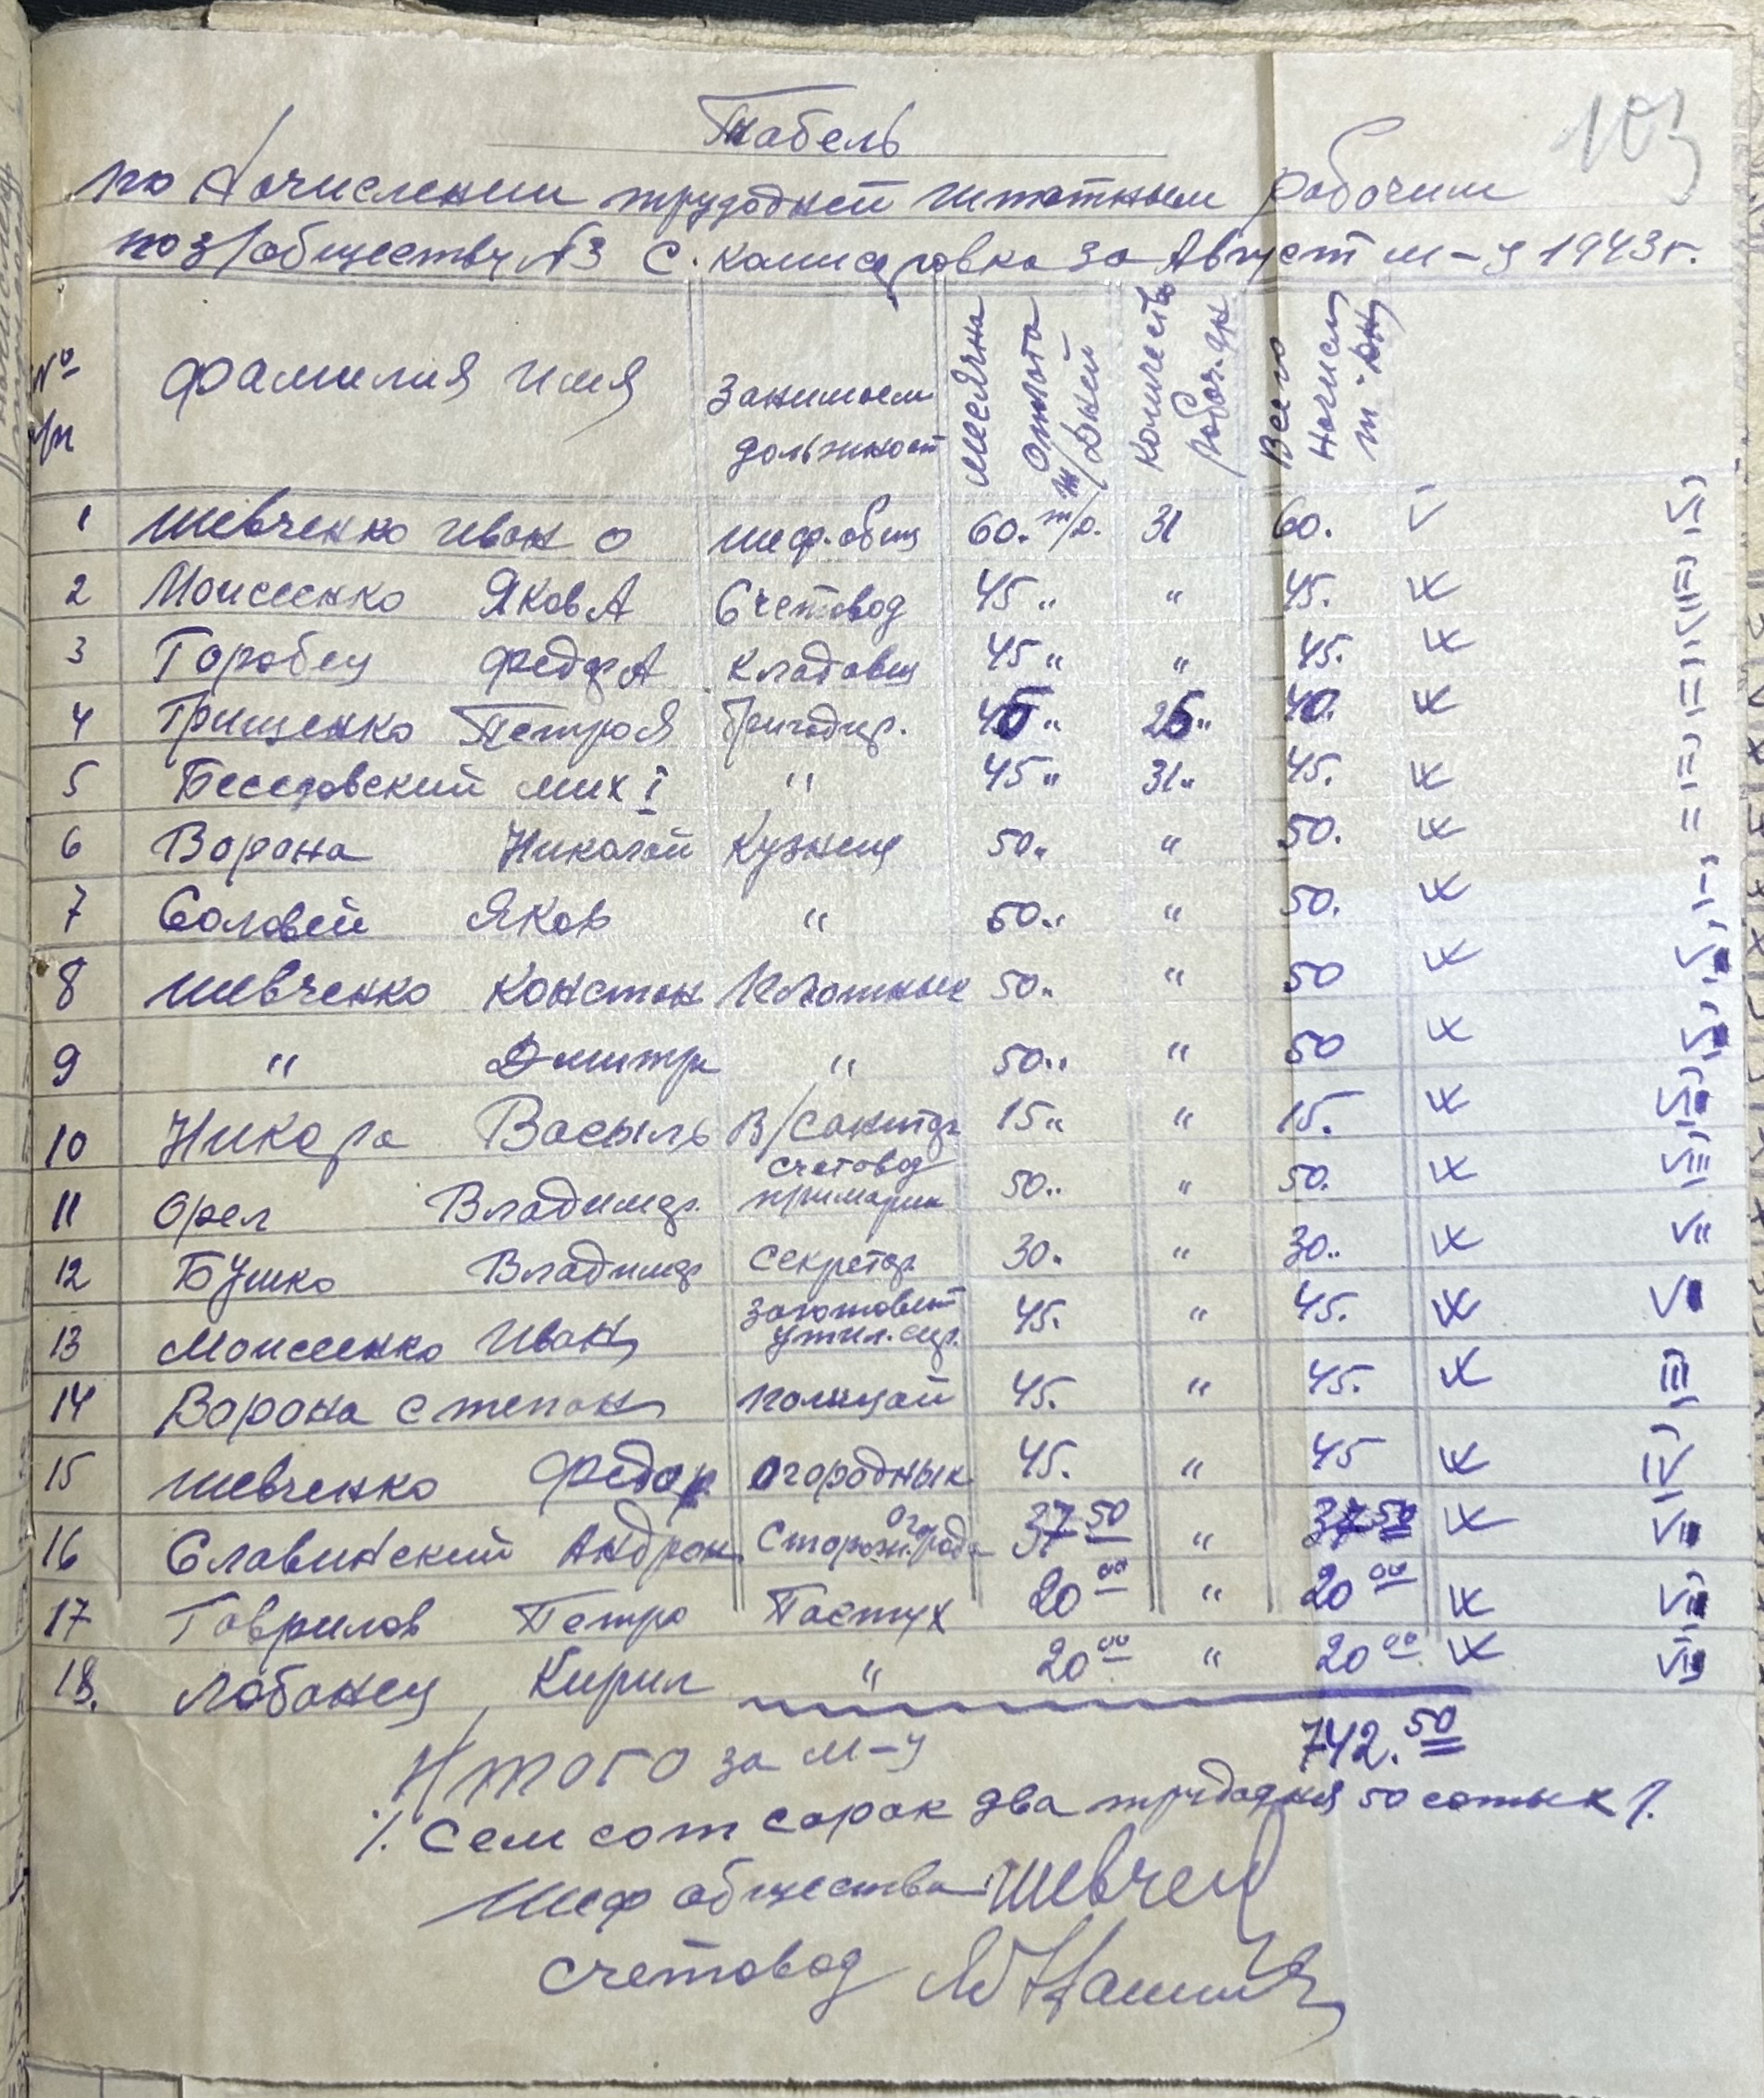 103
Табель
по Начислении трудодней штатным рабочим
по з/обществу №3 с. Комисаровка за Август м-ц 1943 г.
№ п/п фамилия имя Занимаем должност месячна Оплата т/дней Количеств рабоч. дн Всего Начисл т-дн
1 Шевченко Иван О шеф. общ 60. т/д. 31 60. V
2 Моисеенко Яков А Счетовод 45 " " 45. IX
3 Горобец Федор А Кладовщ 45 " " 45. IX
4 Грищенко Петро Я Бригадир. 40 " 26 " 40. IX
5 Беседовский Мих І " 45 " 31 " 45. IX
6 Ворона Николай Кузнец 50 " " 50. IX
7 Соловей Яков " 50 " " 50. IX
8 Шевченко Констан Плотнык 50 " " 50 IX
9 " Дмитр " 50 " " 50 IX
10 Никора Васыль В/Санитар 15 " " 15. IX
11 Орел Владимир. счетовод примарии 50 " " 50. IX
12 Бушко Владимир Секретар 30. " 30 " IX
13 Моисеенко Иван Заготовит утил. сыр. 45. " 45. IX
14 Ворона Степан полицай 45. " 45. IX
15 Шевченко Федор Огороднык 45. " 45 IX
16 Славинский Андрон Сторож огорода 37 50 " 37 50 IX
17 Гаврилов Петро Пастух 20 00 " 20 00 IX
18. Лобанец Кирил " 20 00 " 20 00 IX
Итого за м-ц 742.50
/. Семсот сорок два трудодня 50 сотых /.
Шеф общества Шевчен
Счетовод